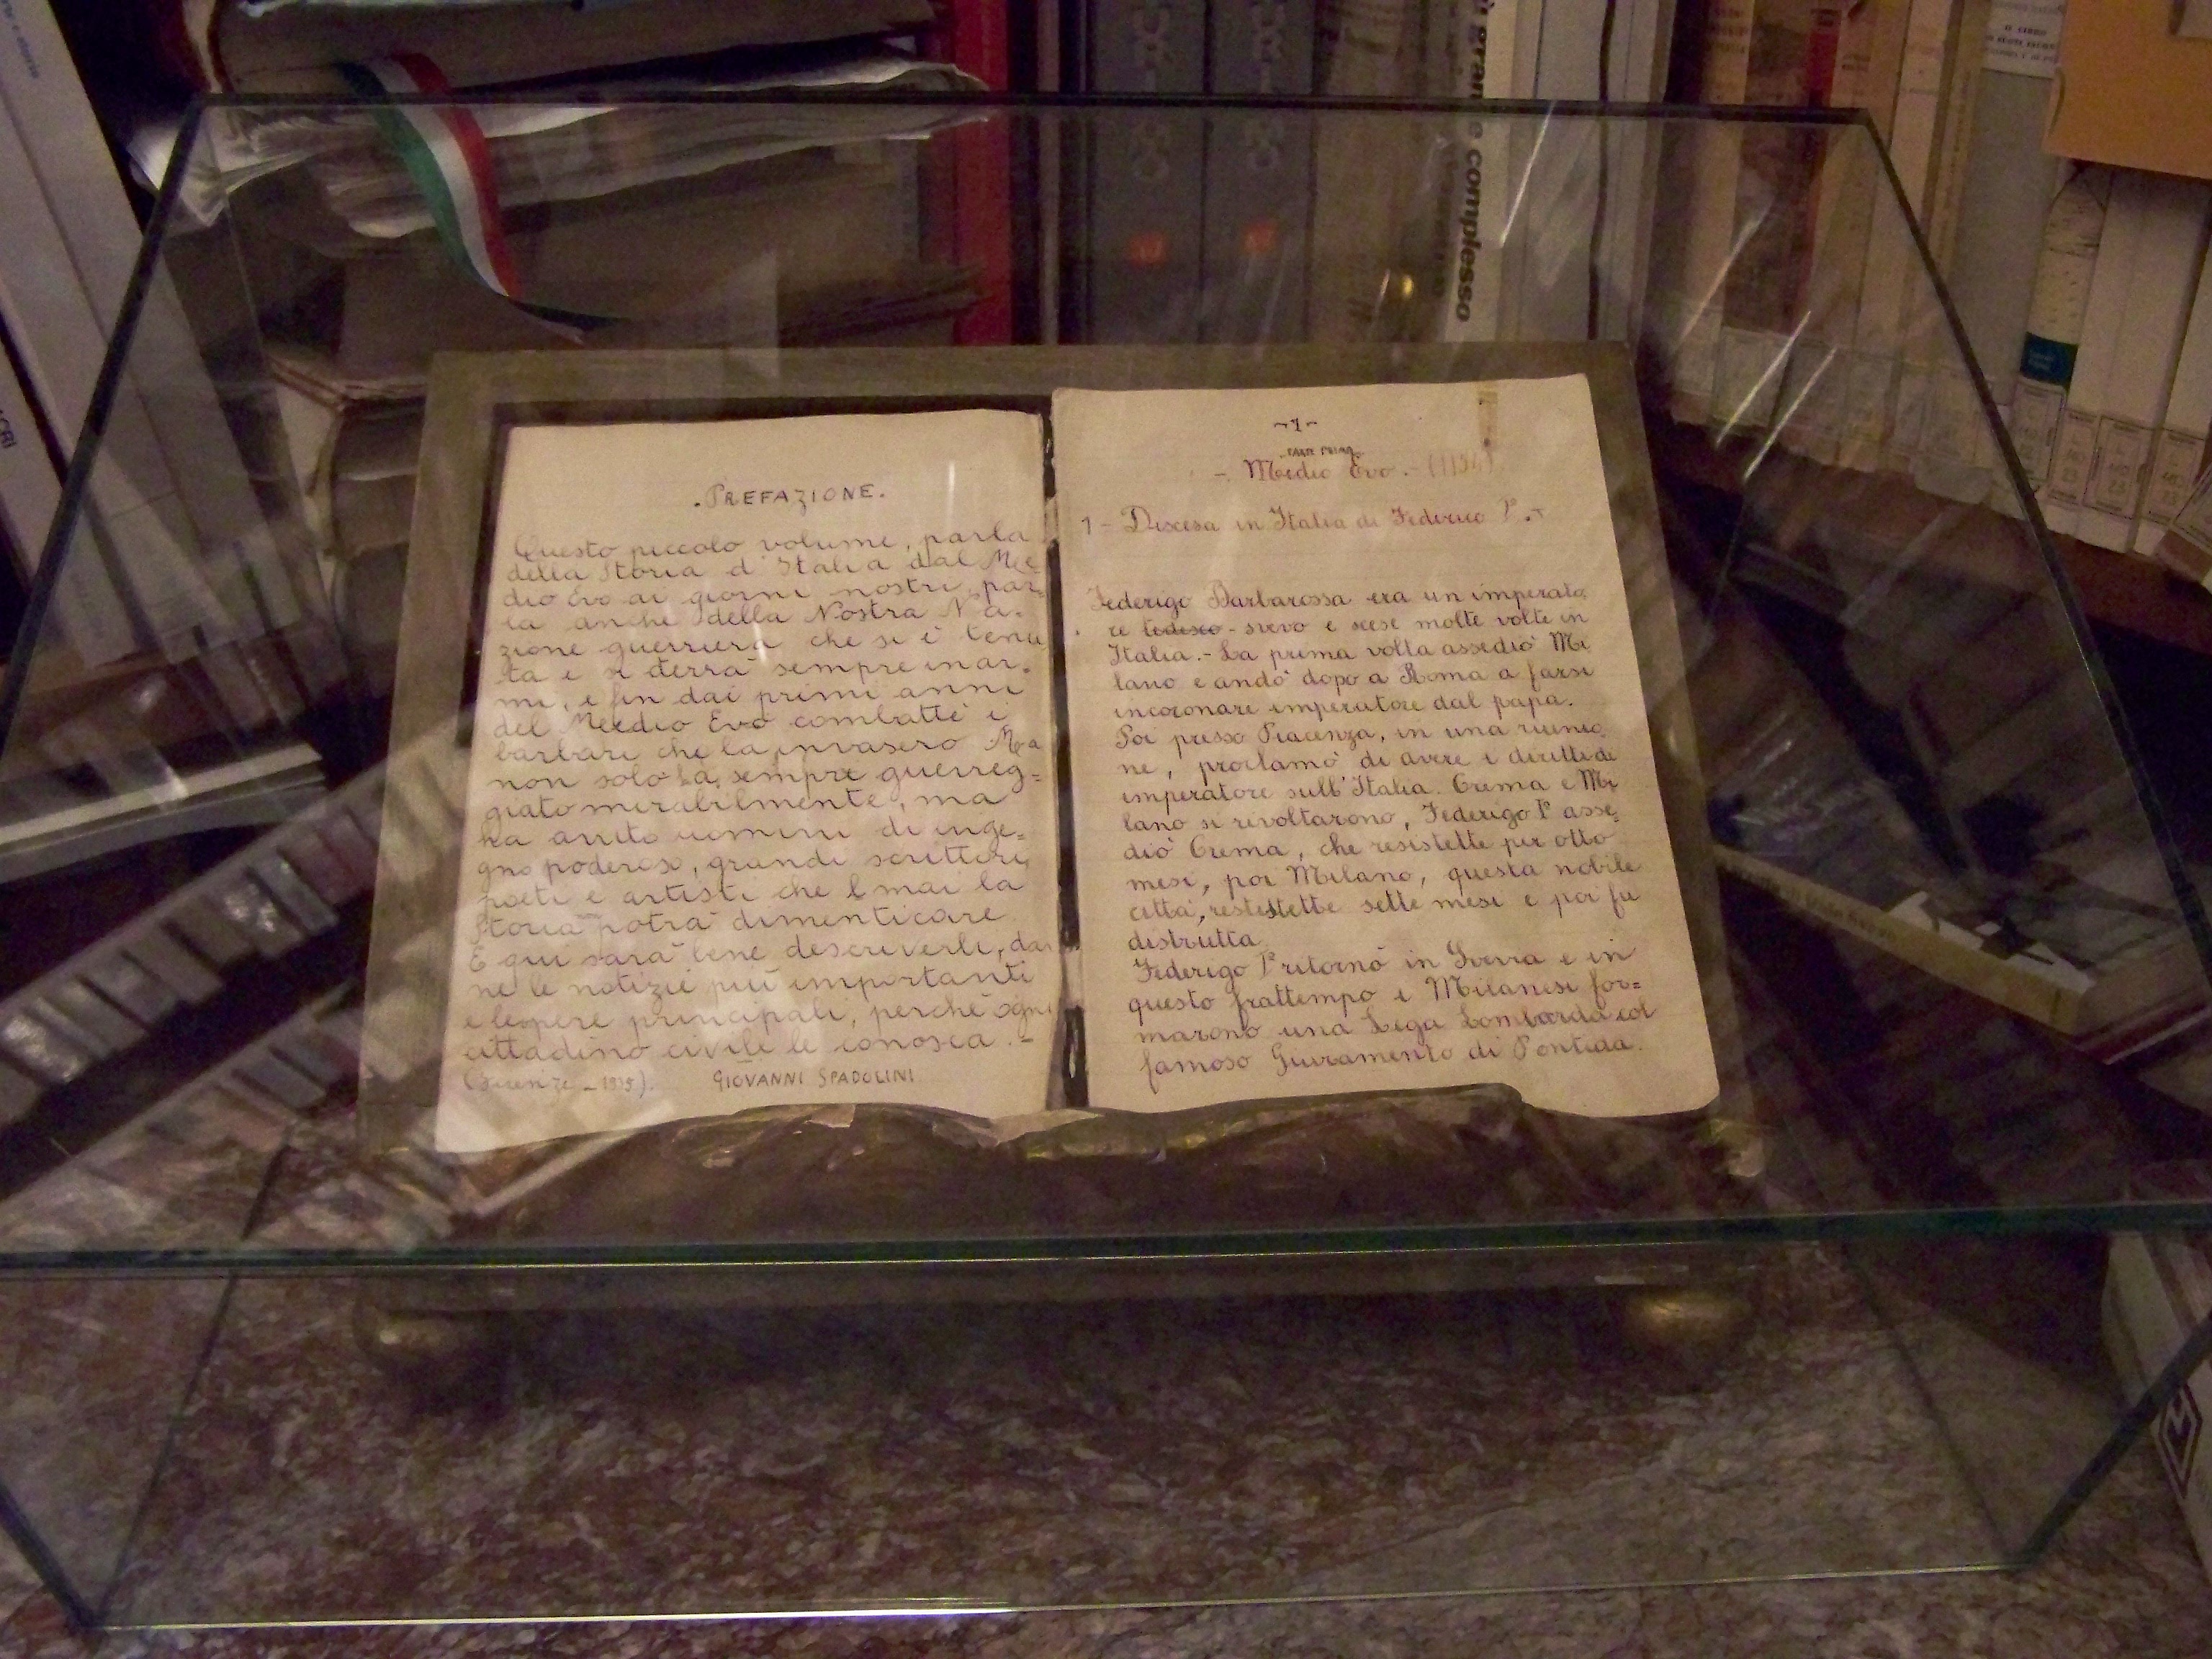 .PREFAZIONE.
Questo piccolo volume, parla
della Storia d'Italia dal Me=
dio Evo ai giorni nostri, par=
la anche della Nostra Na=
zione guerriera che si è tenu
ta e si terrà sempre in ar=
mi, e fin dai primi anni
del Medio Evo combattè i
barbari che la invasero. Ma
non solo ha sempre guerreg=
giato mirabilmente, ma
ha avuto uomini di inge=
gno poderoso, grandi scrittori,
poeti e artisti che mai la
Storia potrà dimenticare.
E qui sarà bene descriverli, dar
ne le notizie più importanti
e le opere principali, perchè ogni
cittadino civile le conosca.-
(Firenze - 1935). GIOVANNI SPADOLINI
-1-
PARTE PRIMA
- Medio Evo. -
1 - Discesa in Italia di Federico I°.-
Federigo Barbarossa era un imperato
re tedesco - svevo e scese molte volte in
Italia.- La prima volta assediò Mi
lano e andò dopo a Roma a farsi
incoronare imperatore dal papa.
Poi presso Piacenza, in una riunio
ne, proclamò di avere i diritti di
imperatore sull'Italia. Crema e Mi
lano si rivoltarono, Federigo I° asse
diò Crema, che resistette per otto
mesi, poi Milano, questa nobile
città, resistette sette mesi e poi fu
distrutta.
Federigo I° ritornò in guerra e in
questo frattempo i Milanesi for=
marono una Lega Lombarda col
famoso Giuramento di Pontida.
grande complesso